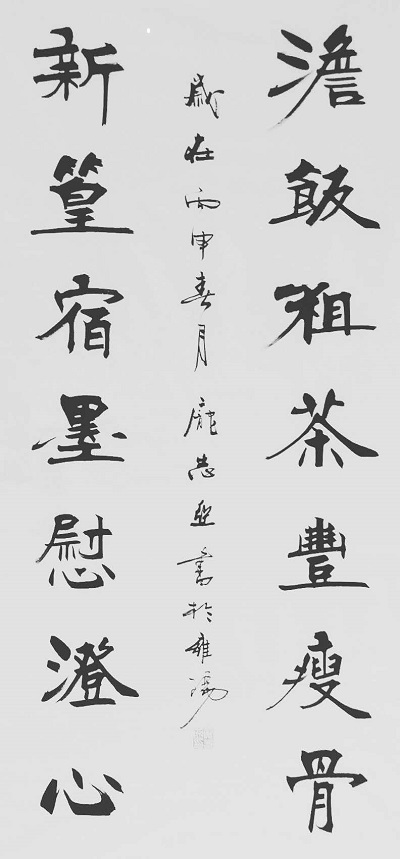 澹飯粗茶豐瘦骨
新篁宿墨慰澄心
歲在丙申春月龐志亞書於雍陽